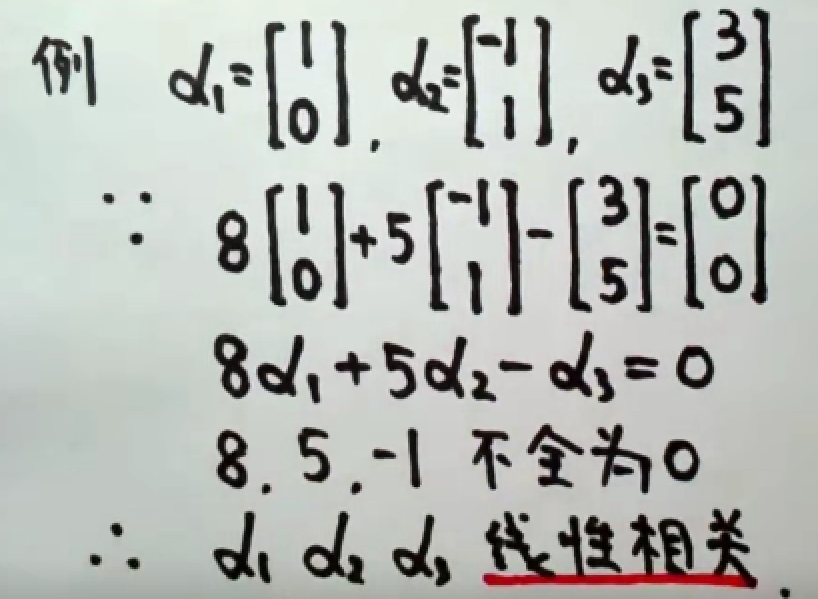 例 α₁=[1 0], α₂=[-1 1], α₃=[3 5]
∵ 8[1 0]+5[-1 1]-[3 5]=[0 0]
8α₁+5α₂-α₃=0
8, 5, -1 不全为0
∴ α₁ α₂ α₃ 线性相关.